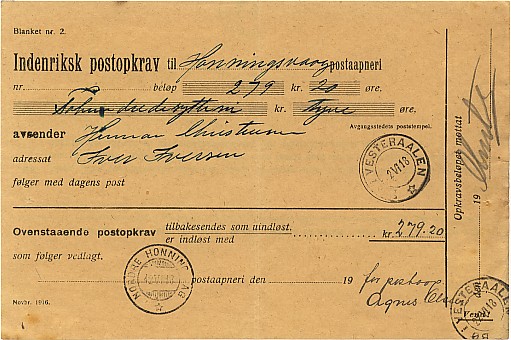 Blanket nr. 2.
Indenriksk postopkrav til Honningsvaag postaapneri
nr. beløp 279 kr. 20 øre.
kr. tyve øre.
avsender Herman Christensen
Avgangsstedets poststempel.
adressat Iver Iversen
følger med dagens post
I VESTERAALEN
2 VI 18
Ovenstaaende postopkrav tilbakesendes som uindløst.
er indløst med
kr. 279.20
som følger vedlagt.
NORDRE HONNINGSVAAG
postaapneri den 19
for postaap.
Agnes
Novbr. 1916.
Opkrævsbeløpet mottat
19
I VESTERAALEN